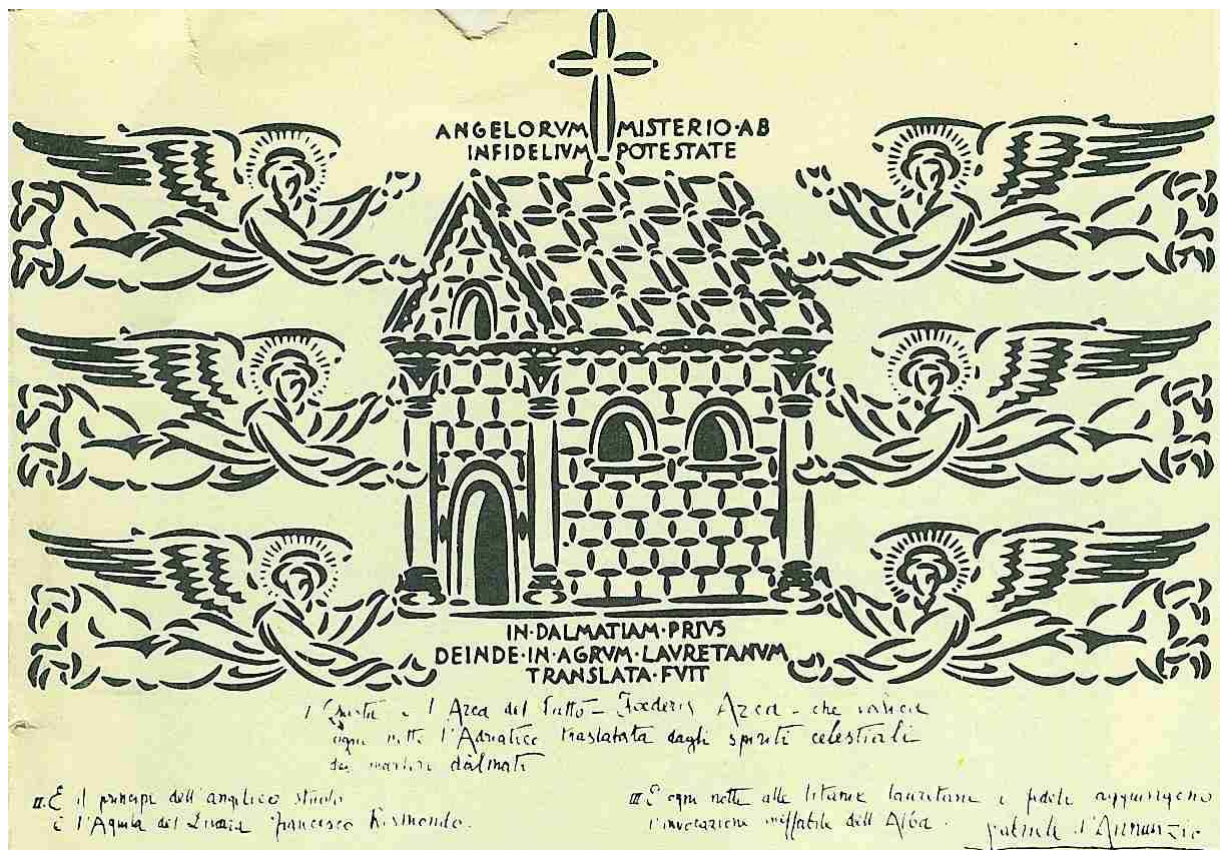 ANGELORVM MISTERIO·AB
INFIDELIVM POTESTATE
IN·DALMATIAM·PRIVS
DEINDE·IN·AGRVM·LAVRETANVM
TRANSLATA·FVIT
I Questa è l'Arca del Patto - Foederis Arca - che varica
ogni notte l'Adriatico traslatata dagli spiriti celestiali
dei martiri dàlmati
II. E il principe dell'angelico stuolo
è l'Aquila del Dinara Francesco Rismondo.
III. E ogni notte alle litanie lauretane i fedeli aggiungono
l'invocazione ineffabile dell'Alba.
Gabriele d'Annunzio